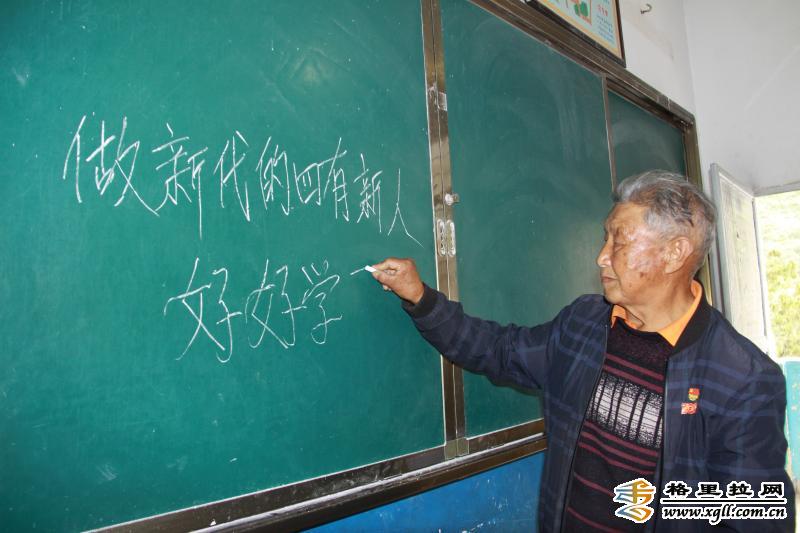 做新代的四有新人
好好学
格里拉网
www.xgll.com.cn